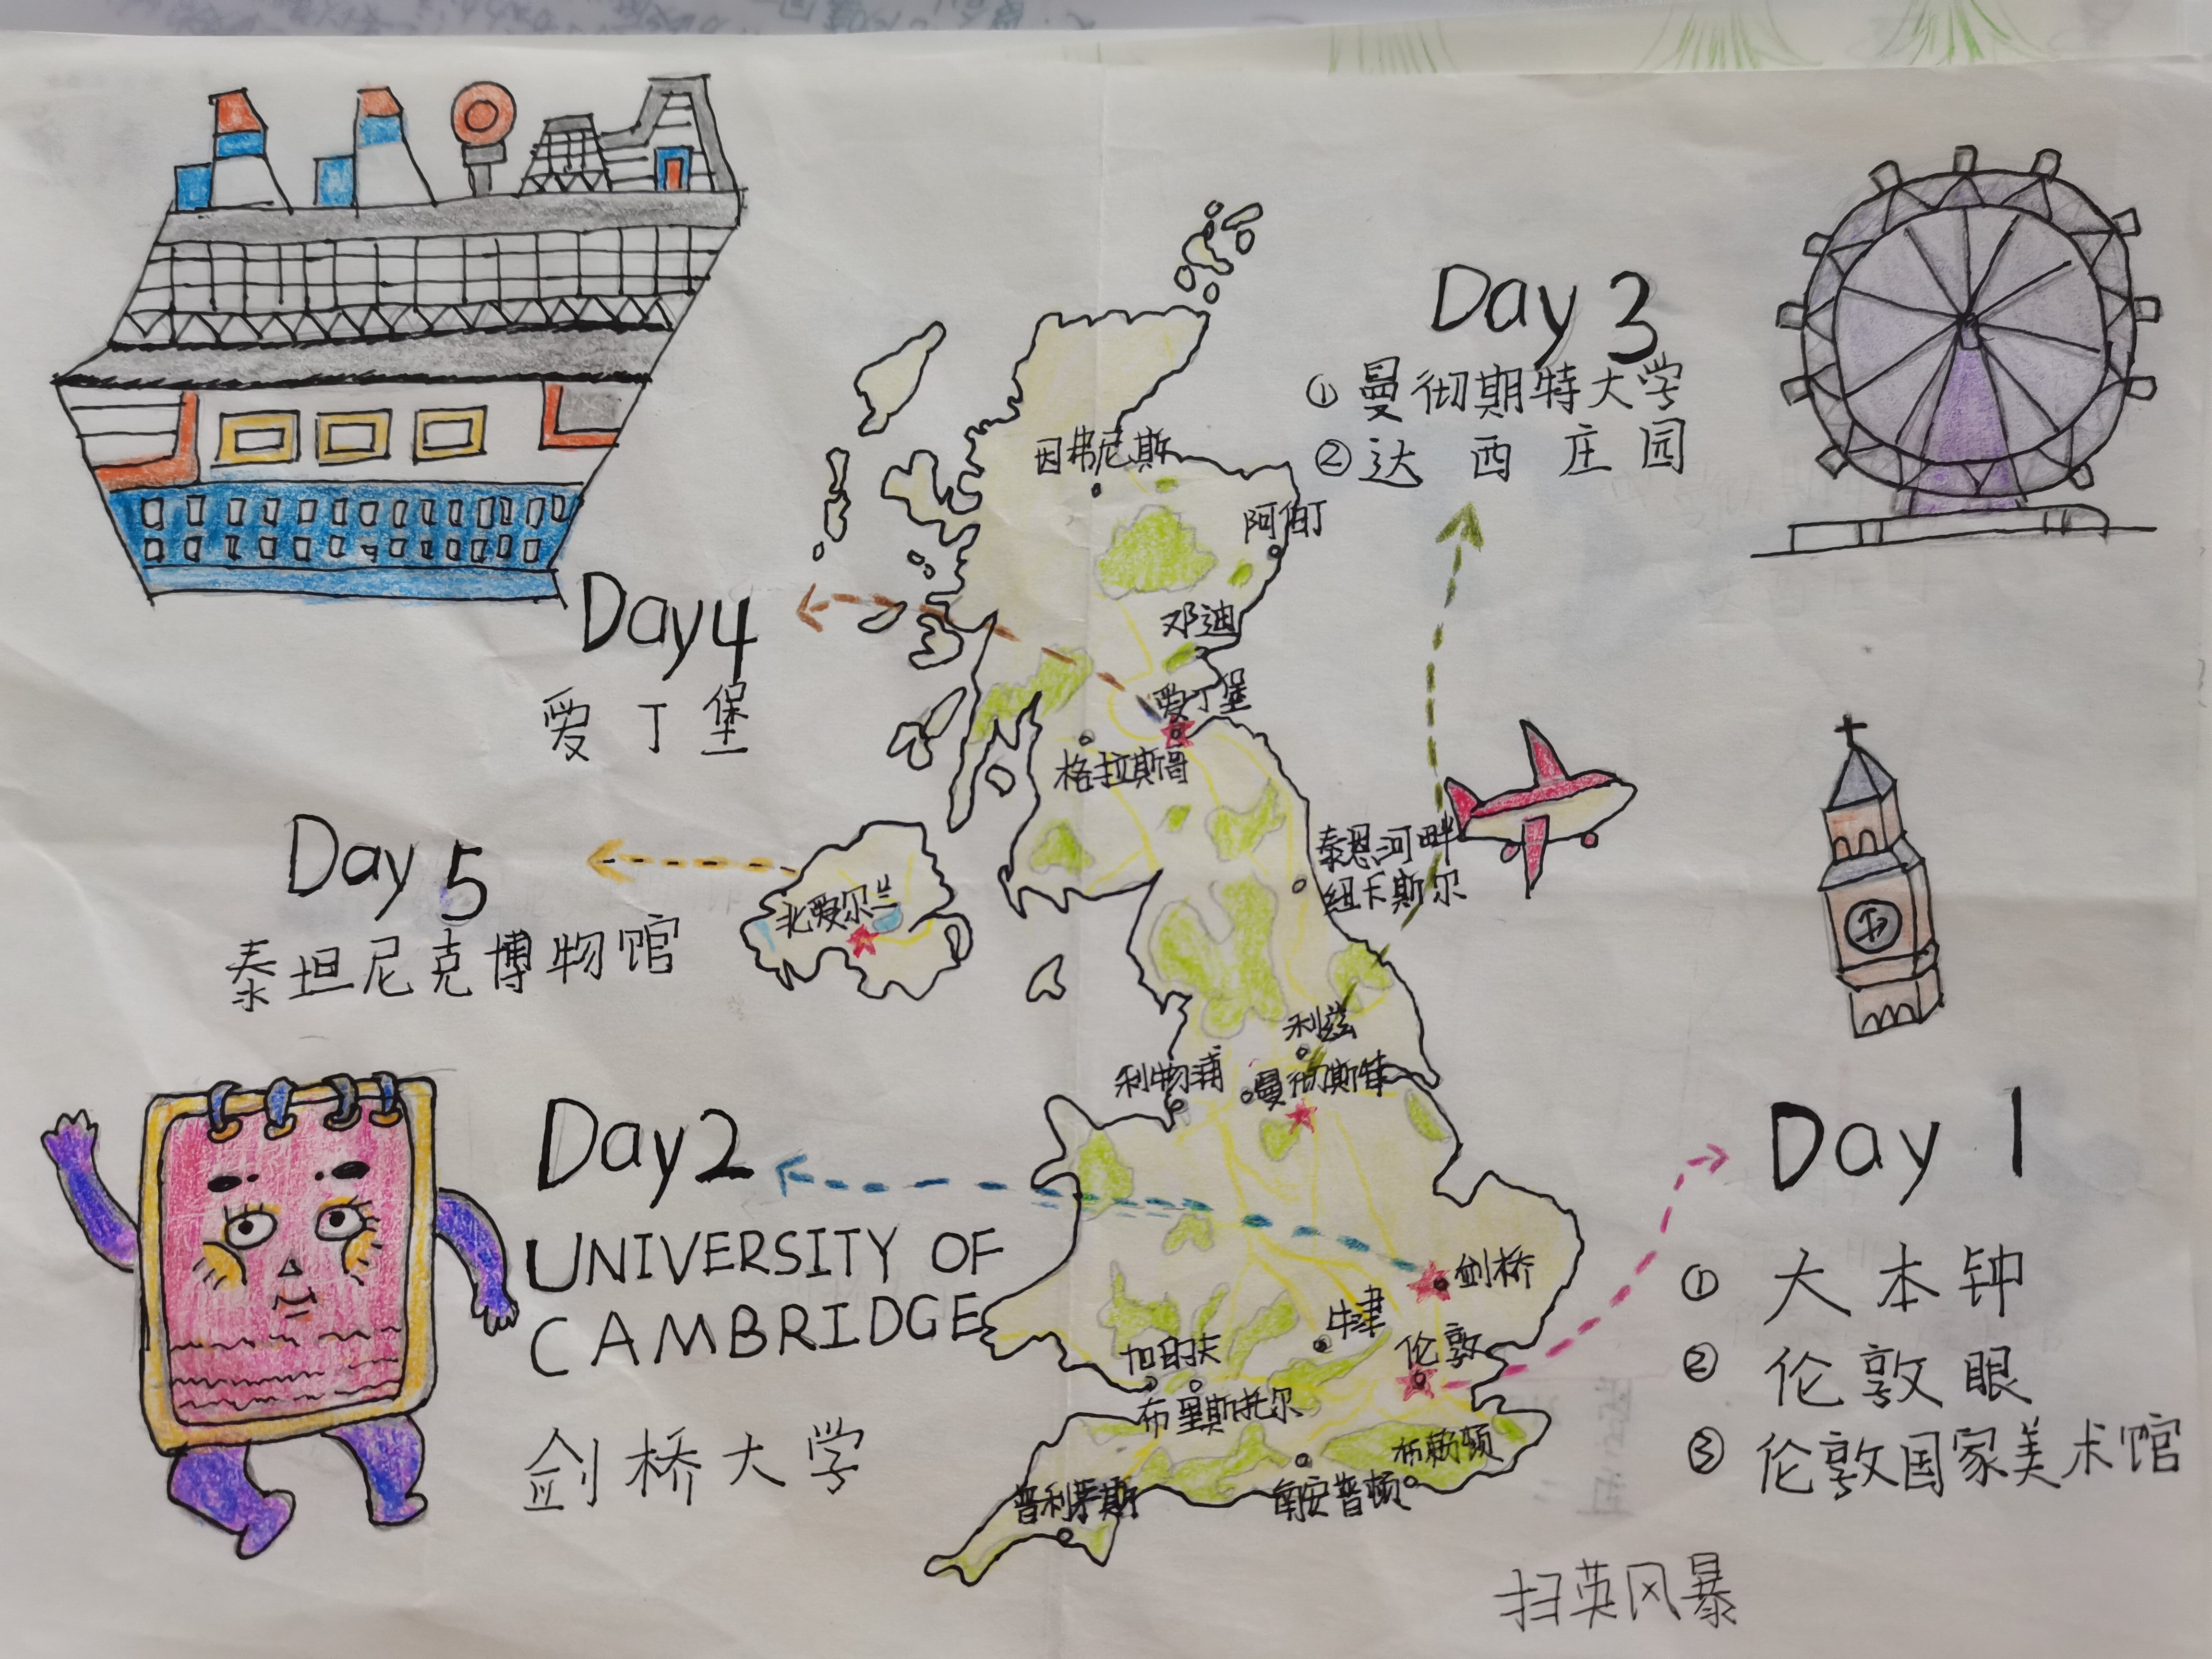 Day 3
①曼彻期特大学
②达西庄园
因弗尼斯
阿伯丁
Day4
爱丁堡
邓迪
爱丁堡
格拉斯哥
Day 5
泰坦尼克博物馆
北爱尔兰
泰恩河畔
纽卡斯尔
利兹
利物浦
曼彻斯特
Day2
UNIVERSITY OF
CAMBRIDGE
剑桥大学
Day 1
①大本钟
②伦敦眼
③伦敦国家美术馆
剑桥
牛津
伦敦
加的夫
布里斯托尔
布莱顿
南安普顿
普利茅斯
扫英风暴